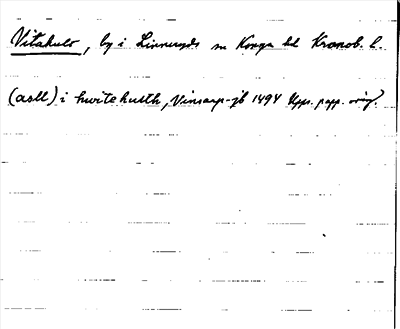 Vitakulo, by i Linneryds sn Konga hd Kronob. l.
(asll) i hwitekulth, Vinsarp-jb 1494 Upps. papp. orig.